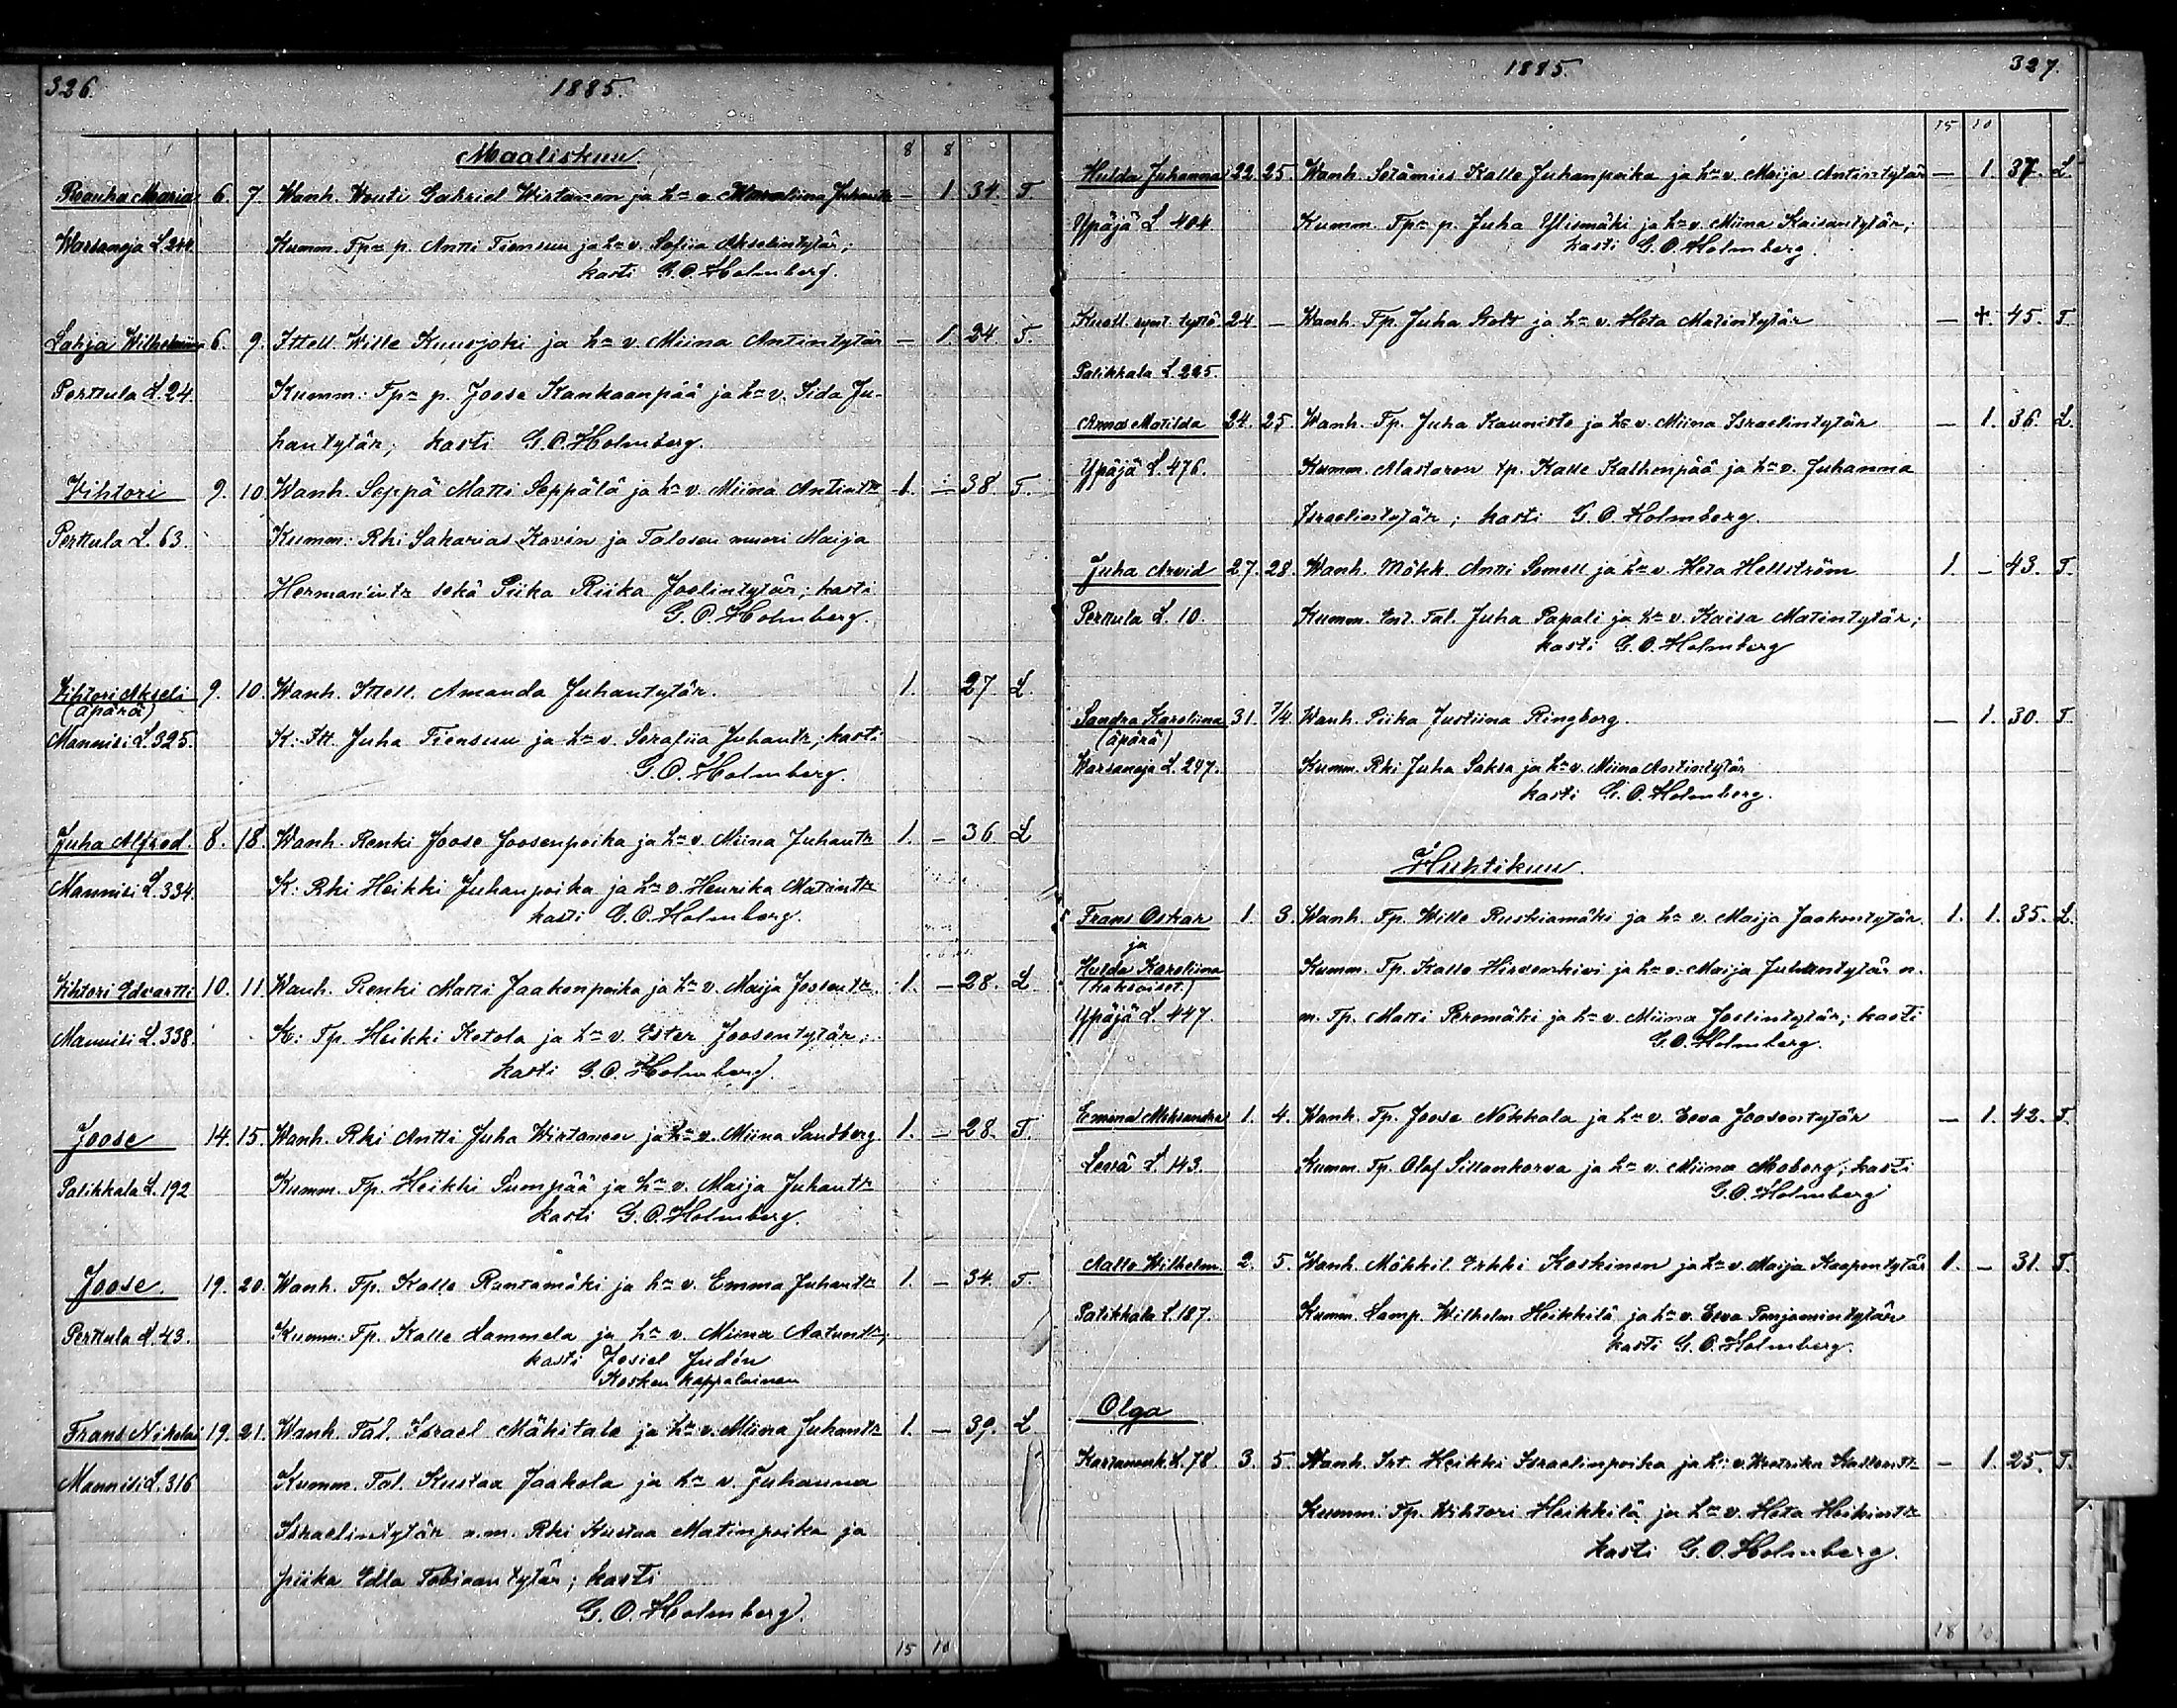 326. 1885.
8 8
Maaliskuu
Rauha Maria 6. 7. Wanh. Wouti Gabriel Wirtanen ja hn v. Juhantr — 1 34. T.
Warsanoja L. 244 Kumm. Tpn p. Antti Tiensuu ja hn v. Sofiia Akselintytär;
kasti G.O. Holmberg.
Lahja Wilhelmiina 6. 9. Ittell. Wille Kuusjoki ja hn v. Miina Antintytär — 1 24. T.
Perttula L. 24. Kumm: Tpn p. Joose Kankaanpää ja hn v. Iida Ju-
hantytär; kasti G.O. Holmberg.
Vihtori 9. 10. Wanh. Seppä Matti Seppälä ja hn v. Miina Antintr 1. — 38. T.
Perttula L. 63. Kumm: Rki Sakarias Kavén ja Talosen muori Maija
Hermanintr sekä Piika Riika Joelintytär; kasti
G.O. Holmberg.
Vihtori Akseli 9. 10. Wanh. Ittell. Amanda Juhantytär. 1. 27 L.
(äpärä)
Mannisi L. 325. K: Itt. Juha Tiensuu ja hn v. Serafiia Juhantr; kasti
G.O. Holmberg.
Juha Alfred. 8. 18. Wanh. Renki Joose Joosenpoika ja hn v. Miina Juhantr 1. — 36 L
Mannisi L. 334. K: Rki Heikki Juhanpoika ja hn v. Henrika Matintr
kasti G.O. Holmberg.
Vihtori Edvartti 10. 11. Wanh. Renki Matti Jaakonpoika ja hn v. Maija Joosentr 1. — 28. L
Mannisi L. 338. K: Tp. Heikki Ketola ja hn v. Ester Joosentytär;
kasti G.O. Holmberg.
Joose 14. 15. Wanh. Rki Antti Juha Wirtanen ja hn v. Miina Sandberg 1. — 28. T.
Palikkala L. 192 Kumm. Tp. Heikki Sumpää ja hn v. Maija Juhantr
kasti G.O. Holmberg.
Joose. 19. 20. Wanh. Tp. Kalle Rantamäki ja hn v. Emma Juhantr 1. — 34. T.
Perttula L. 43. Kumm: Tp. Kalle Lammela ja hn v. Miina Aatuntr;
kasti Josiel Judén
Kosken kappalainen
Frans Nikolai 19. 21. Wanh. Tal. Israel Mäkitalo ja hn v. Miina Juhantr 1. — 39. L
Mannisi L. 316 Kumm. Tal. Kustaa Jaakola ja hn v. Juhanna
Israelintytär n.m. Rki Kustaa Matinpoika ja
piika Edla Tobiaantytär; kasti
G.O. Holmberg.
15 10
1885. 327.
15 10
Hulda Juhanna 22. 25. Wanh. Sotamies Kalle Juhanpoika ja hn v. Maija Antintytär — 1. 37. L.
Ypäjä L. 404 Kumm. Tpn p. Juha Ylismäki ja hn v. Miina Kaisantytär;
kasti G.O. Holmberg.
Kuoll. synt. tyttö 24 — Wanh. Tp. Juha Stolt ja hn v. Heta Matintytär — +. 45. T.
Palikkala L. 225.
Anna Matilda 24. 25. Wanh. Tp. Juha Kaunisto ja hn v. Miina Israelintytär — 1. 36. L.
Ypäjä L. 476. Kumm. Alastaron tp. Kalle ja hn v. Juhanna
Israelintytär; kasti G.O. Holmberg.
Juha Arvid 27. 28. Wanh. Mökk. Antti Somell ja hn v. Heta Hellström 1. — 43. T.
Perttula L. 10. Kumm. Ent. Tal. Juha Papali ja hn v. Kaisa Matintytär;
kasti G.O. Holmberg
Sandra Karoliina 31. 7/4 Wanh. Piika Justiina Ringberg. — 1. 30. T.
(äpärä)
Warsanoja L. 247. Kumm. Rki Juha Saksa ja hn v. Miina Antintytär
kasti G.O. Holmberg.
Huhtikuu.
Frans Oskar 1. 3. Wanh. Tp. Wille Ruskiamäki ja hn v. Maija Jaakontytär. 1. 1. 35. L.
ja
Hulda Karoliina Kumm. Tp. Kalle Hirvenkivi ja hn v. Maija Juhantytär n.
(kaksoiset.)
Ypäjä L. 447. m. Tp. Matti Peremäki ja hn v. Miina Joelintytär; kasti
G.O. Holmberg.
Emma Aleksandra 1. 4. Wanh. Tp. Joose Nokkala ja hn v. Eeva Joosentytär — 1. 42. T.
L. 143. Kumm. Tp. Olof Sillankorva ja hn v. Miina Moberg; kasti
G.O. Holmberg
Kalle Wilhelm. 2. 5. Wanh. Mökkil. Erkki Koskinen ja hn v. Maija Kaapontytär 1. — 31. T.
Palikkala L. 187. Kumm. Lamp. Wilhelm Heikkilä ja hn v. Eeva Penjamintytär
kasti G.O. Holmberg.
Olga
Kartanonk. L. 78 3. 5. Wanh. Itt. Heikki Israelinpoika ja hn v. Kallentr — 1. 25. T.
Kumm. Tp. Wihtori Heikkilä ja hn v. Heta Heikintr
kasti G.O. Holmberg.
18 10